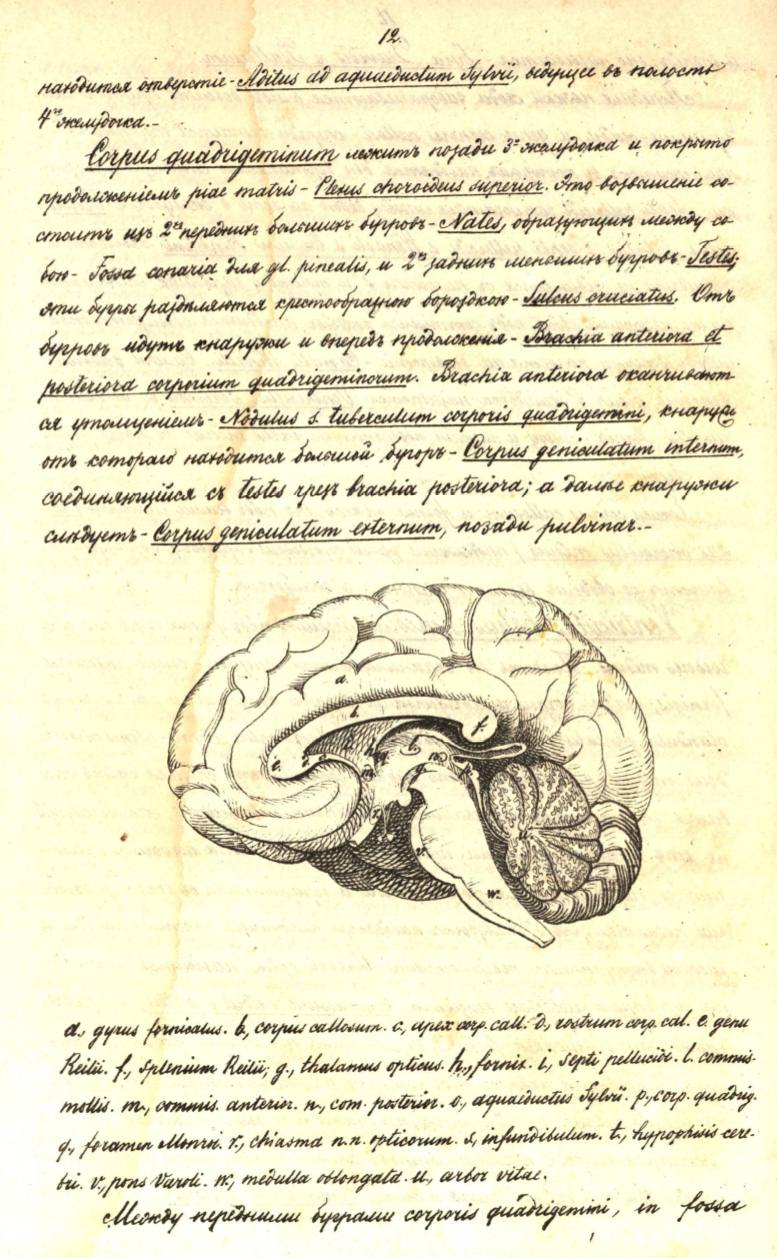 12.
находится отверстіе - Aditus ad aquaeductum Sylvii, ведущее въ полость
4го желудочка. -
Corpus quadrigeminum лежитъ позади 3го желудочка и покрыто
продолженіемъ piae matris - Plexus choroideus superior. Это возвышеніе со-
стоитъ изъ 2хъ переднихъ большихъ бугровъ - Nates, образующихъ между со-
бою - Fossa conaria для gl. pinealis, и 2хъ заднихъ меньшихъ бугровъ - Testes;
эти бугры раздѣляются крестообразною бороздкою - Sulcus cruciatus. Отъ
бугровъ идутъ кнаружи и впередъ продолженія - Brachia anteriora et
posteriora corporium quadrigeminorum. Brachia anteriora оканчивают
ся утолщеніемъ - Nodulus s. tuberculum corporis quadrigemini, кнаружи
отъ котораго находится большой бугоръ - Corpus geniculatum internum,
соединяющійся съ testes чрезъ brachia posteriora; а далѣе кнаружи
слѣдуетъ - Corpus geniculatum externum, позади pulvinar. -
a.
b.
f.
l.
h.
e.
m.
n.
p.
r.
v.
u.
w.
a., gyrus fornicatus. b., corpus callosum. c., apex corp. call. d., rostrum corp. cal. e. genu
Reilii. f., splenium Reilii; g., thalamus opticus. h., fornix. i., septi pellucidi. l. commis-
mollis. m., commis. anterior. n., com. posterior. o., aquaeductus Sylvii. p., corp. quadrig.
q., foramen Monroi. r., chiasma n.n. opticorum. s., infundibulum. t., hypophisis cere-
bri. v., pons Varoli. w., medulla oblongata. u., arbor vitae.
Между передними буграми corporis quadrigemini, in fossa